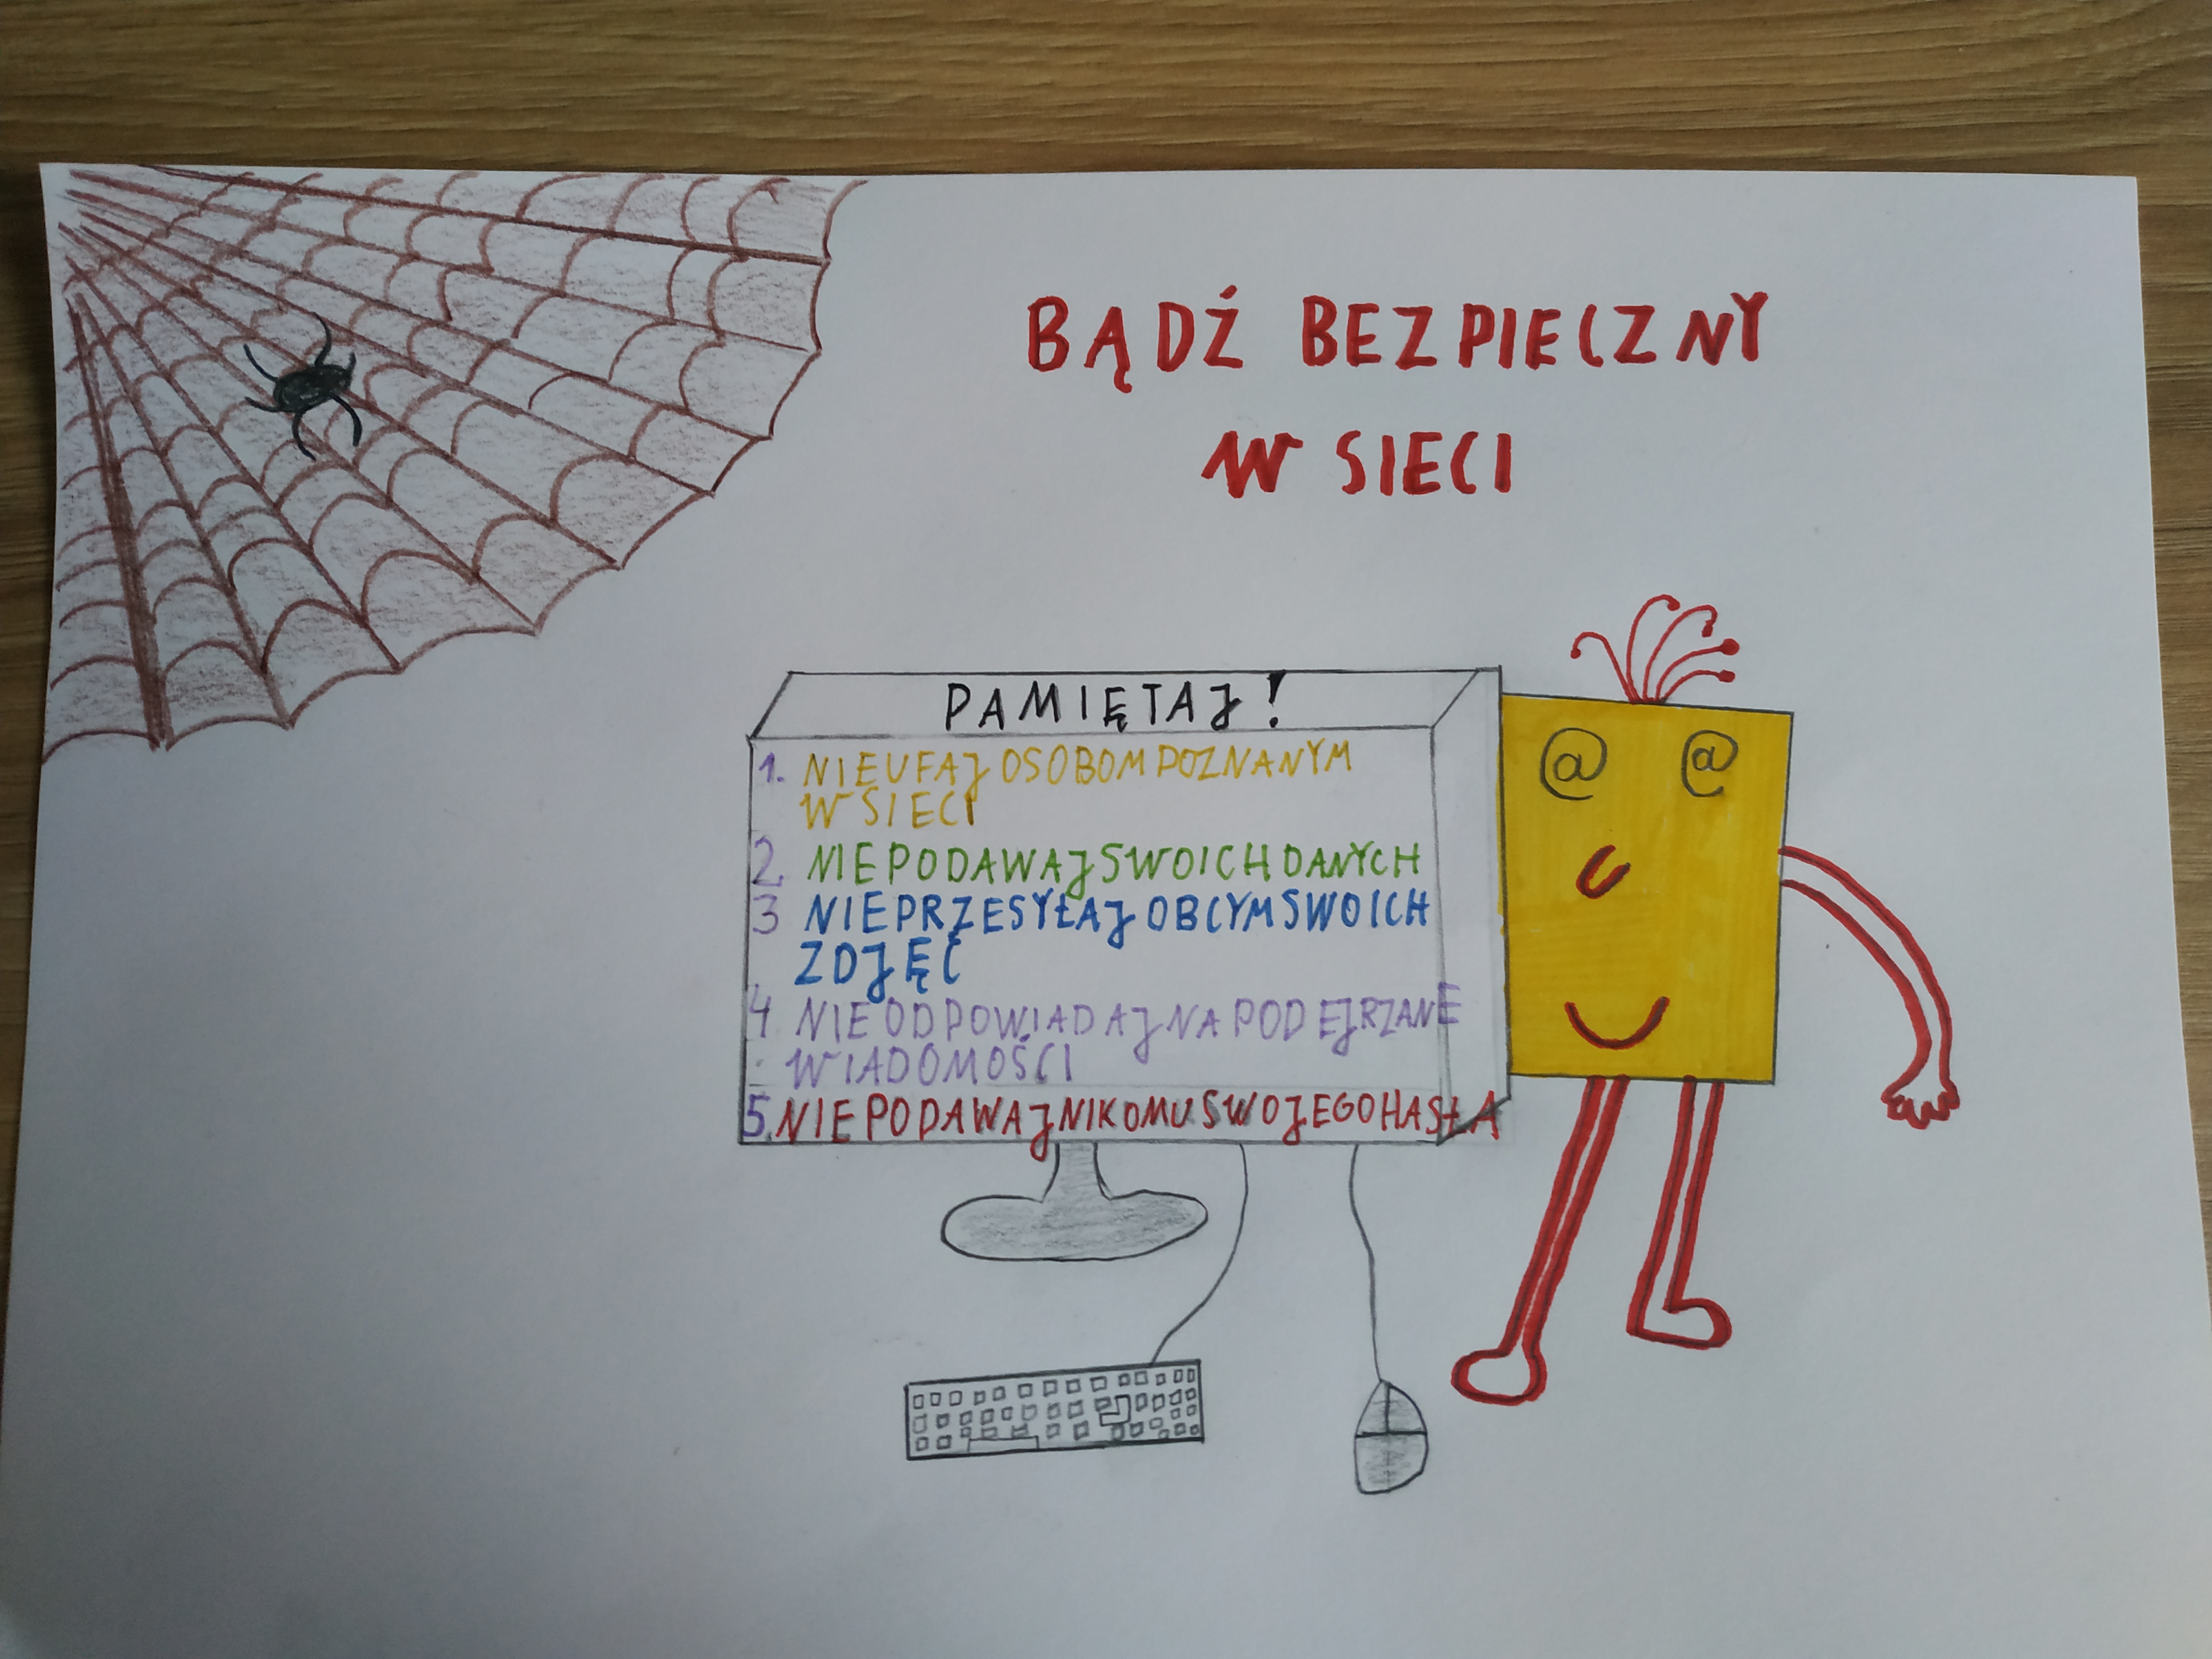 BĄDŹ BEZPIECZNY
W SIECI
PAMIĘTAJ!
1. NIE UFAJ OSOBOM POZNANYM
W SIECI
2. NIE PODAWAJ SWOICH DANYCH
3 NIE PRZESYŁAJ OBCYM SWOICH
ZDJĘĆ
4. NIE ODPOWIADAJ NA PODEJRZANE
WIADOMOŚCI
5. NIE PODAWAJ NIKOMU SWOJEGO HASŁA
@ @